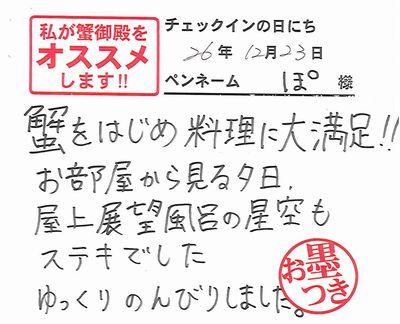 私が蟹御殿を
オススメ
します!!
チェックインの日にち
26年12月23日
ペンネーム ぽ 様
蟹をはじめ料理に大満足!!
お部屋から見る夕日、
屋上展望風呂の星空も
ステキでした
ゆっくりのんびりしました。
お墨つき